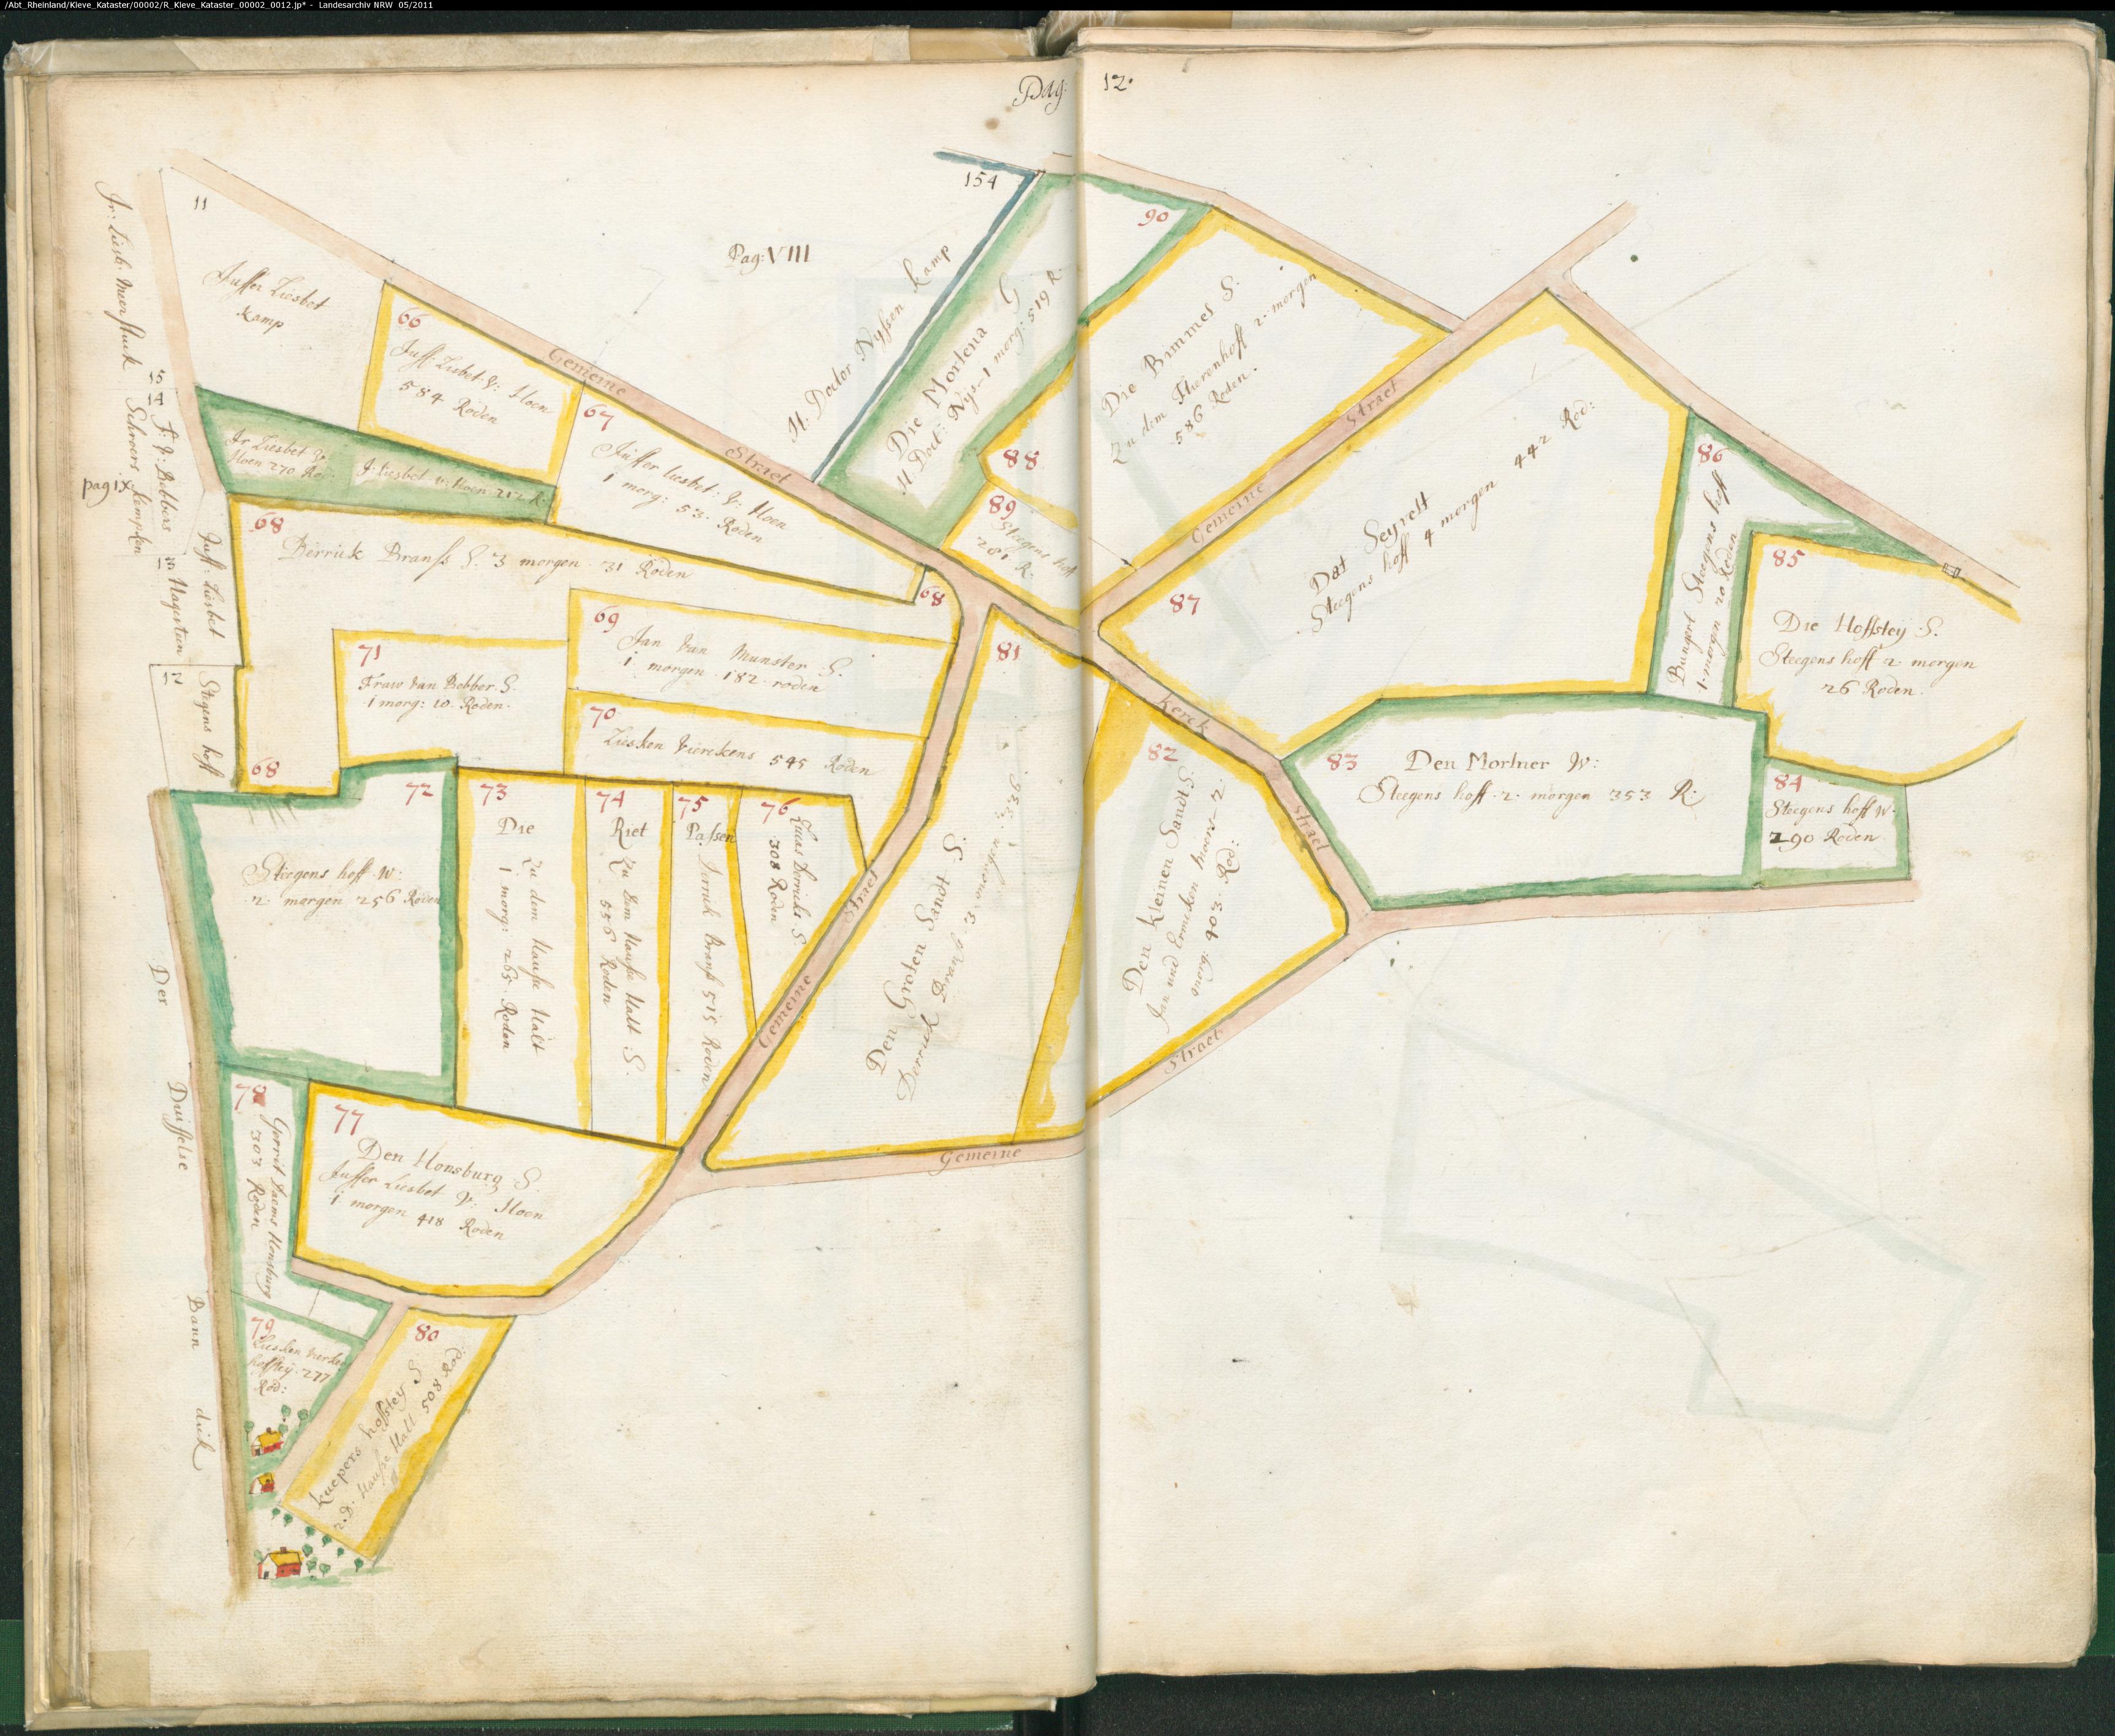 /Abt_Rheinland/Kleve_Kataster/00002/R_Kleve_Kataster_00002_0012.jp* - Landesarchiv NRW 05/2011
Pag: 12.
11
Juffer Liesbet
Kamp
Jr: Liesb: meer stuck
15
14
Schroers Kempken
pag: IX
13
Hagestein
Juff: Liesbet
12
Steegens hoff
66
Juff: Lisbet: V: Hoen
584 Roden
Jr Liesbet V:
Hoen 270 Ro:
J: Liesbet v: Hoen 212 R:
67
Juffer liesbet: V: Hoen
1 morg: 53. Roden
Gemeine Straet
Pag: VIII
154
H. Doctor Nyssen Kamp
Die Mortena G
H. Doct: Nys 1 morg: 519 R.
90
Die Bimmel S:
Zu dem Therenhoff 2. morgen
586 Roden.
88
89
Steegens hoff
281 R:
Gemeine Straet
87
Dat Seyvelt
Steegens hoff 4 morgen 442 Rod:
86
Bungert Steegens hoff
1. morgen 20 Roden
85
Die Hoffsteÿ S.
Steegens hoff 2 morgen
26 Roden.
84
Steegens hoff W.
290 Roden
83
Den Mortner W:
Steegens hoff 2. morgen 353 R:
Kerck Straet
82
Den kleinen Sandt S:
Jan und Ermcken moers 2.
morg: 403. Rod:
81
Den Groten Sandt S:
Derrick Branß 3 morgen 336
Gemeine Straet
68
Derrick Branß S. 3 morgen 31 Roden
68
68
69
Jan Van Munster S.
1 morgen 182 roden
70
Liesken Vierckens 545 Roden
71
Fraw Van Bebber S.
1 morg: 10. Roden.
72
Steegens hoff W:
2 morgen 256 Roden
73
Die
Zu dem Hauße Halt
1 morg: 265 Roden
74
Riet
Zu dem Hauße Halt S.
556 Roden
75
Passen
Derrick Branß 515 Roden
76
Lucas Derricks S.
308 Roden
Gemeine Straet
77
Den Honsburg S.
Juffer Liesbet V: Hoen
1 morgen 418 Roden
78
Gerrit Daems Honsburg
303 Roden
79
hoffsteÿ 277
Rod:
80
Kuepers hoffsteÿ S
z. D. Hauße Halt 508 Rod:
Der Duisselse Bann dick